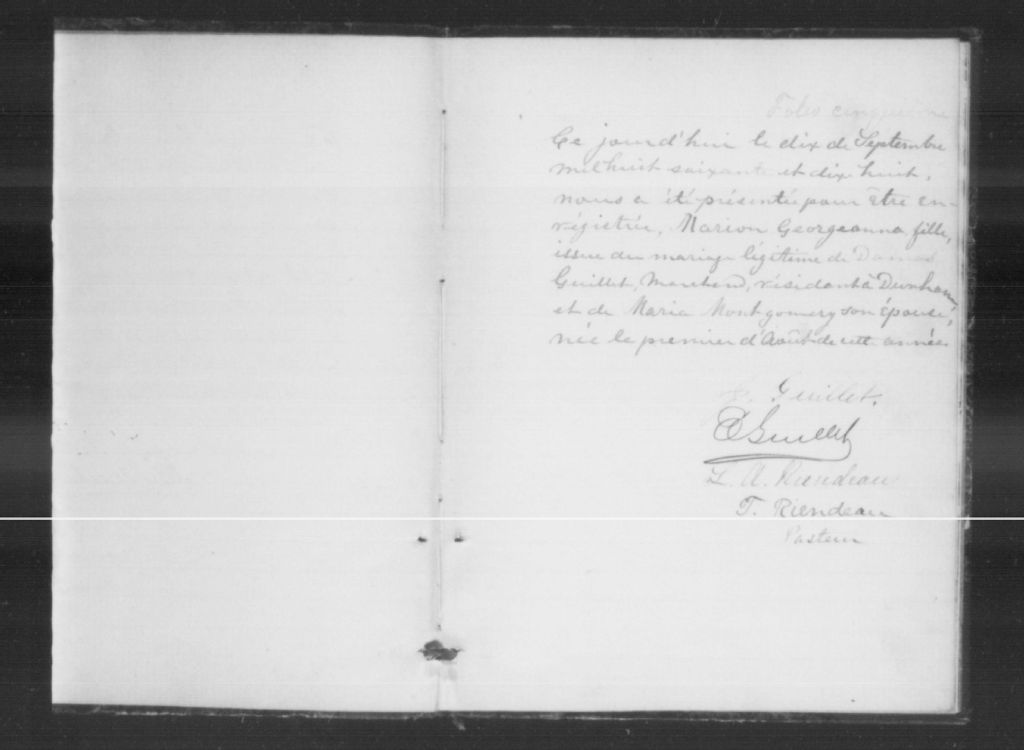 Folio cinquième
Ce jourd'hui le dix de Septembre
mil huit soixante et dix huit,
nous a été présentée pour être en-
régistrée, Marion Georgeanna, fille,
issue du mariage légitime de Damas
Guillet, Marchand, résidant à Dunham,
et de Maria Montgomery son épouse,
née le premier d'Août de cette année
Guillet.
Guillet
L. A. Riendeau
T. Riendeau
Pasteur